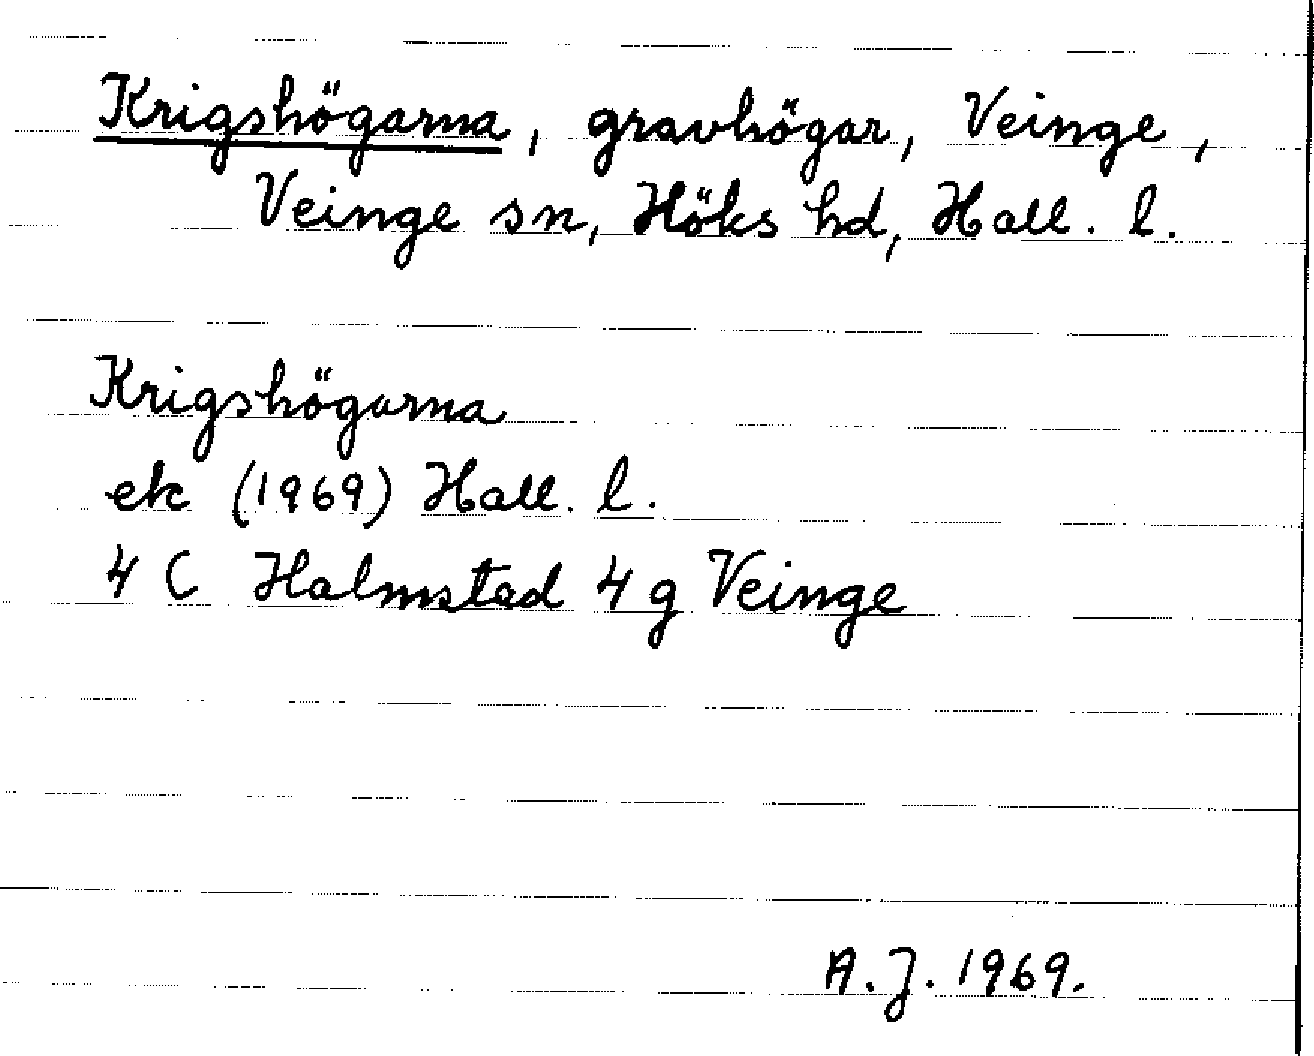 Krigshögarna, gravhögar, Veinge,
Veinge sn, Höks hd, Hall. l.
Krigshögarna
ek (1969) Hall. l.
4 C Halmstad 4 g Veinge
A.J. 1969.